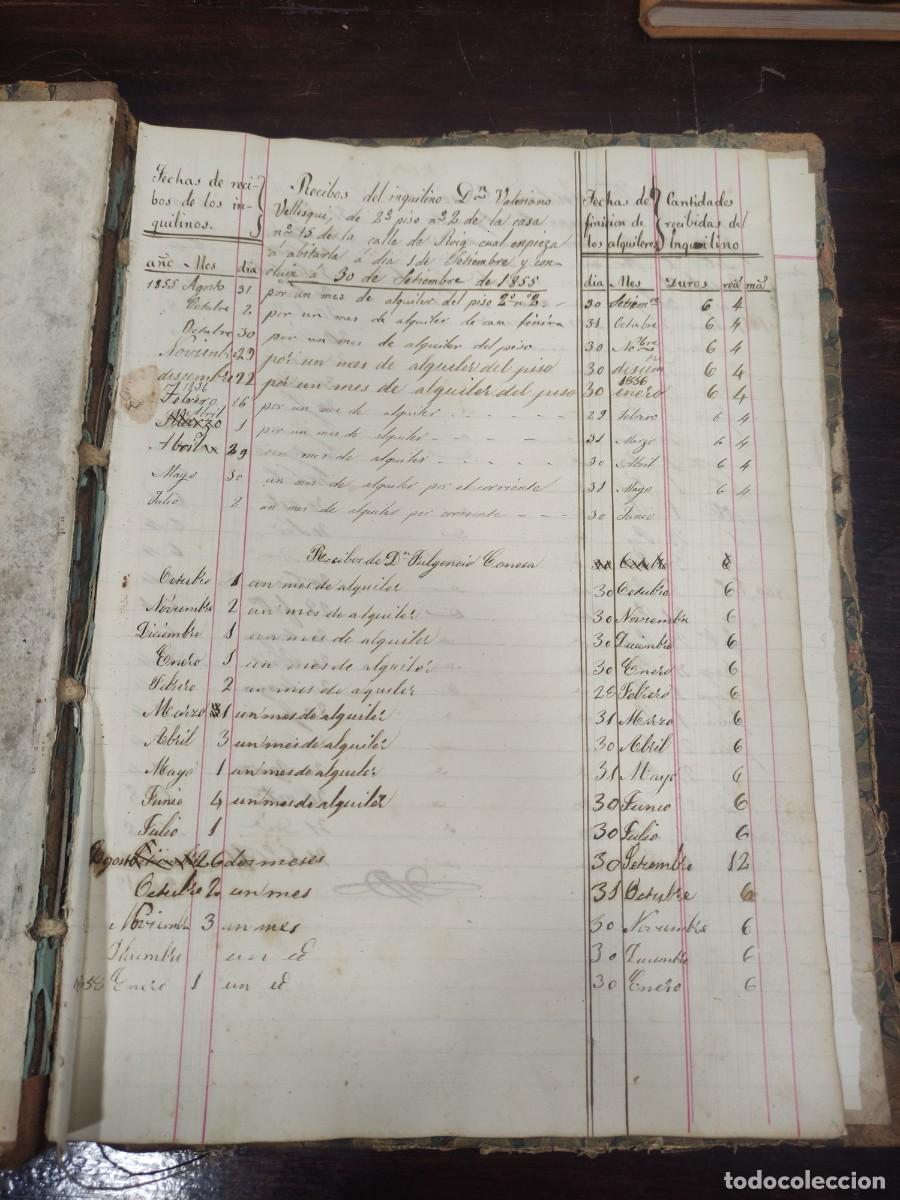 Fechas de reci-
bos de los in-
quilinos.
Recibos del inquilino Dn Valeriano
Vellisqui, de 2º piso nº 2 de la casa
nº 15 de la calle de Roig cual empieza
á abitarla á dia 1 de Setiembre y con-
cluie á 30 de Setiembre de 1855
Fechas de
finicion de
los alquileres
Cantidades
recibidas del
Inquilino
año Mes dia
dia Mes Duros rea.s ma.s
1855 Agosto 31 por un mes de alquiler del piso 2º nº 2 30 Setiem.re 6 4
Octubre 2 por un mes de alquiler de 31 Octubre 6 4
Octubre 30 por un mes de alquiler del piso 30 No.bre 6 4
Noviembre 29 por un mes de alqueler del piso 30 disiem 6 4
disiembre 22 por un mes de alquiler del piso 30 1856 enero 6 4
1856 Febrero 16 por un mes de alquiler 29 Febrero 6 4
Abril 1 por un mes de alquiler 31 Marzo 6 4
Abril 29 un mes de alquiler 30 Abril 6 4
Mayo 30 un mes de alquiler por el corriente 31 Mayo 6 4
Julio 2 un mes de alquiler por corriente 30 Junio
Recibos de Dn Fulgencio Conesa
Octubre 1 un mes de alquiler 30 Octubre 6
Noviembre 2 un mes de alquiler 30 Noviembre 6
Diciembre 1 un mes de alquiler 30 Diciembre 6
Enero 1 un mes de alquiler 30 Enero 6
Febrero 2 un mes de alquiler 28 Febrero 6
Marzo 31 un mes de alquiler 31 Marzo 6
Abril 3 un mes de alquiler 30 Abril 6
Mayo 1 un mes de alquiler 31 Mayo 6
Junio 4 un mes de alquiler 30 Junio 6
Julio 1 30 Julio 6
Agosto 26 dos meses 30 Setiembre 12
Octubre 2 un mes 31 Octubre 6
Noviembre 3 un mes 30 Noviembre 6
Diciembre un id 30 Diciembre 6
1858 Enero 1 un id 30 Enero 6
todocoleccion